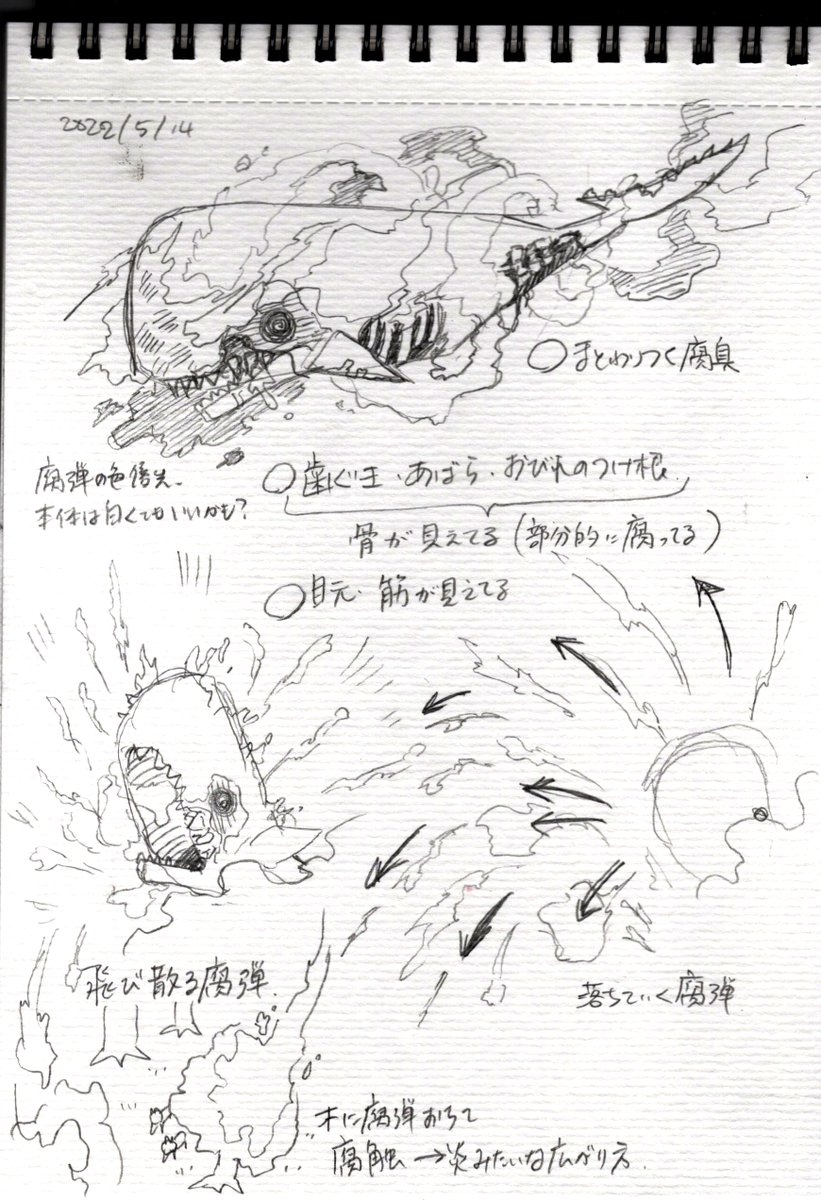 2022/5/14
○まとわりつく腐臭
腐弾の色優先
本体は白くてもいいかも?
○歯ぐき・あばら・おびれのつけ根
骨が見えてる(部分的に腐ってる)
○目元・筋が見えてる
飛び散る腐弾
落ちていく腐弾
木に腐弾おちて
腐触→炎みたいな広がり方